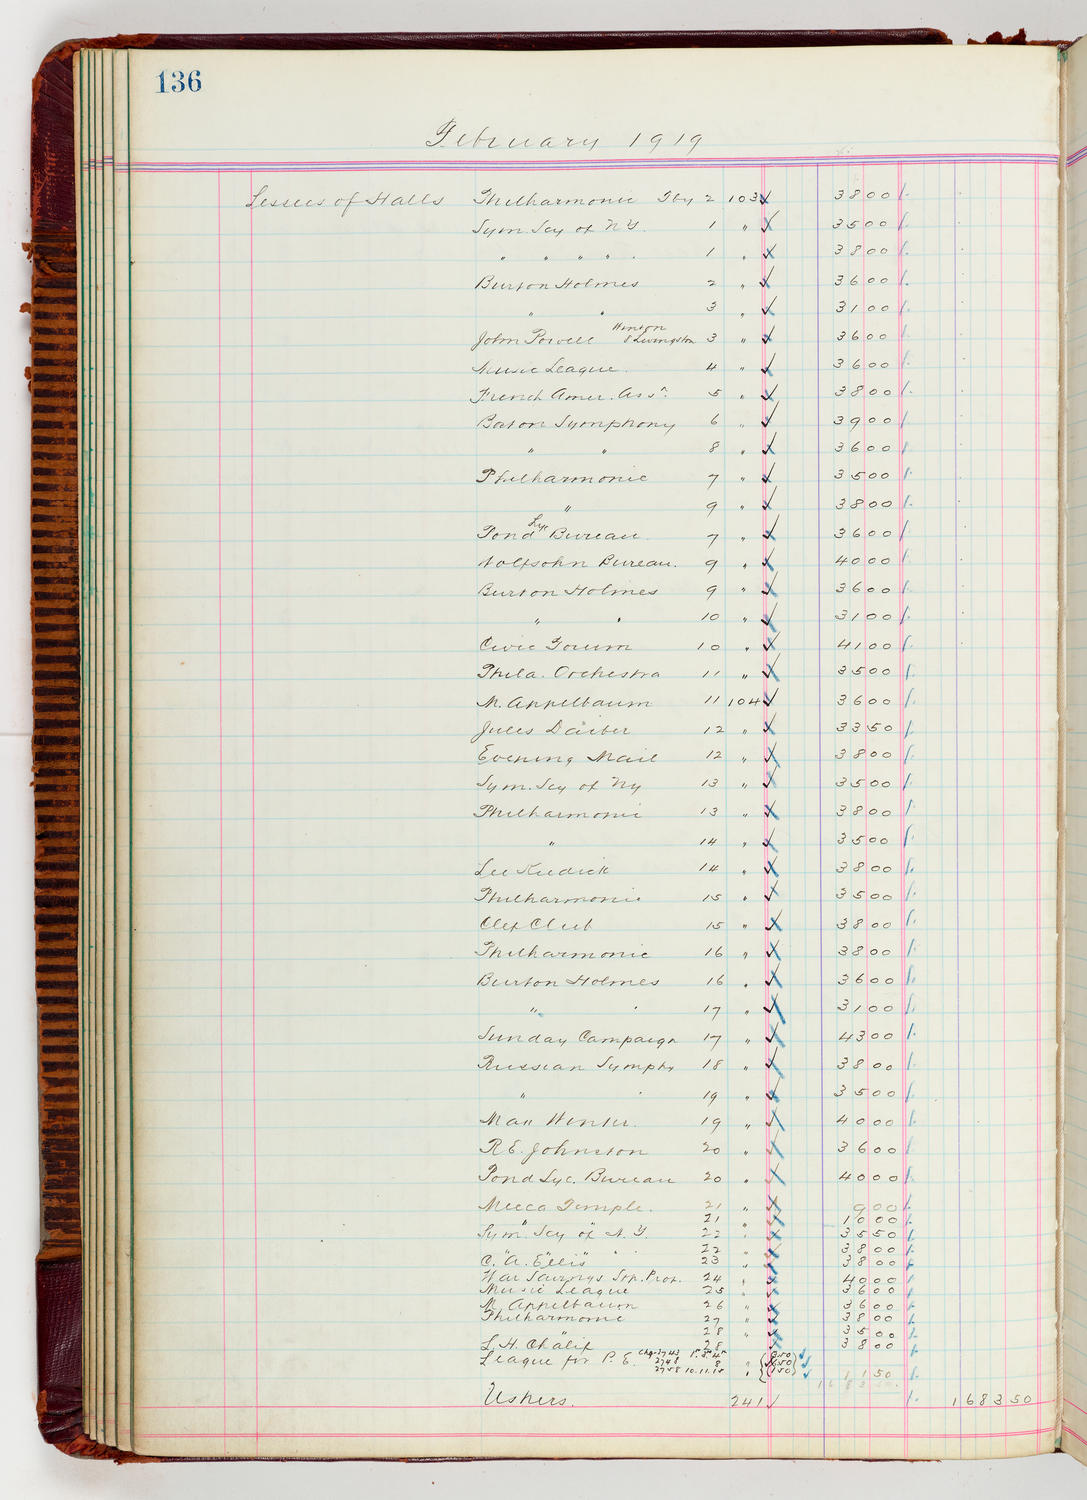 136
February 1919
Lessees of Halls Philharmonic Scy 2 103 ✓ 3800
Sym. Scy of N.Y. 1 " 3500
" " " " . 1 " 3800
Burton Holmes 2 " 3600
" " 3 " 3100
John Powell Winton & Livingston 3 " 3600
Music League. 4 " 3600
French Amer. Assn. 5 " 3800
Baton Symphony 6 " 3900
" " 8 " 3600
Philharmonic 7 " 3500
" 9 " 3800
Pond Lyc Bureau 7 " 3600
Wolfsohn Bureau. 9 " 4000
Burton Holmes 9 " 3600
" " 10 " 3100
Civic Forum 10 " 4100
Phila. Orchestra 11 " 3500
M. Appelbaum 11 104 ✓ 3600
Jules Daiber 12 " 3350
Evening Mail 12 " 3800
Sym. Scy of Ny 13 " 3500
Philharmonic 13 " 3800
" 14 " 3500
Lee Keedick 14 " 3800
Philharmonic 15 " 3500
Clef Club 15 " 3800
Philharmonic 16 " 3800
Burton Holmes 16 " 3600
" " 17 " 3100
Sunday Campaign 17 " 4300
Russian Symphy 18 " 3800
" " 19 " 3500
Max Winter. 19 " 4000
R.E. Johnston 20 " 3600
Pond Lyc. Bureau 20 " 4000
Mecca Temple. 21 " 900
" 21 " 1000
Sym. Scy of N.Y. 22 " 3550
" " " 22 " 3800
C. A. Ellis 23 " 3800
War Savings 24 " 4000
Music League 25 " 3600
M. Appelbaum 26 " 3600
Philharmonic 27 " 3800
" 28 " 3500
L. H. Chalif 28 3800
League for P. E. 1150
Ushers. 241 ✓ 168350